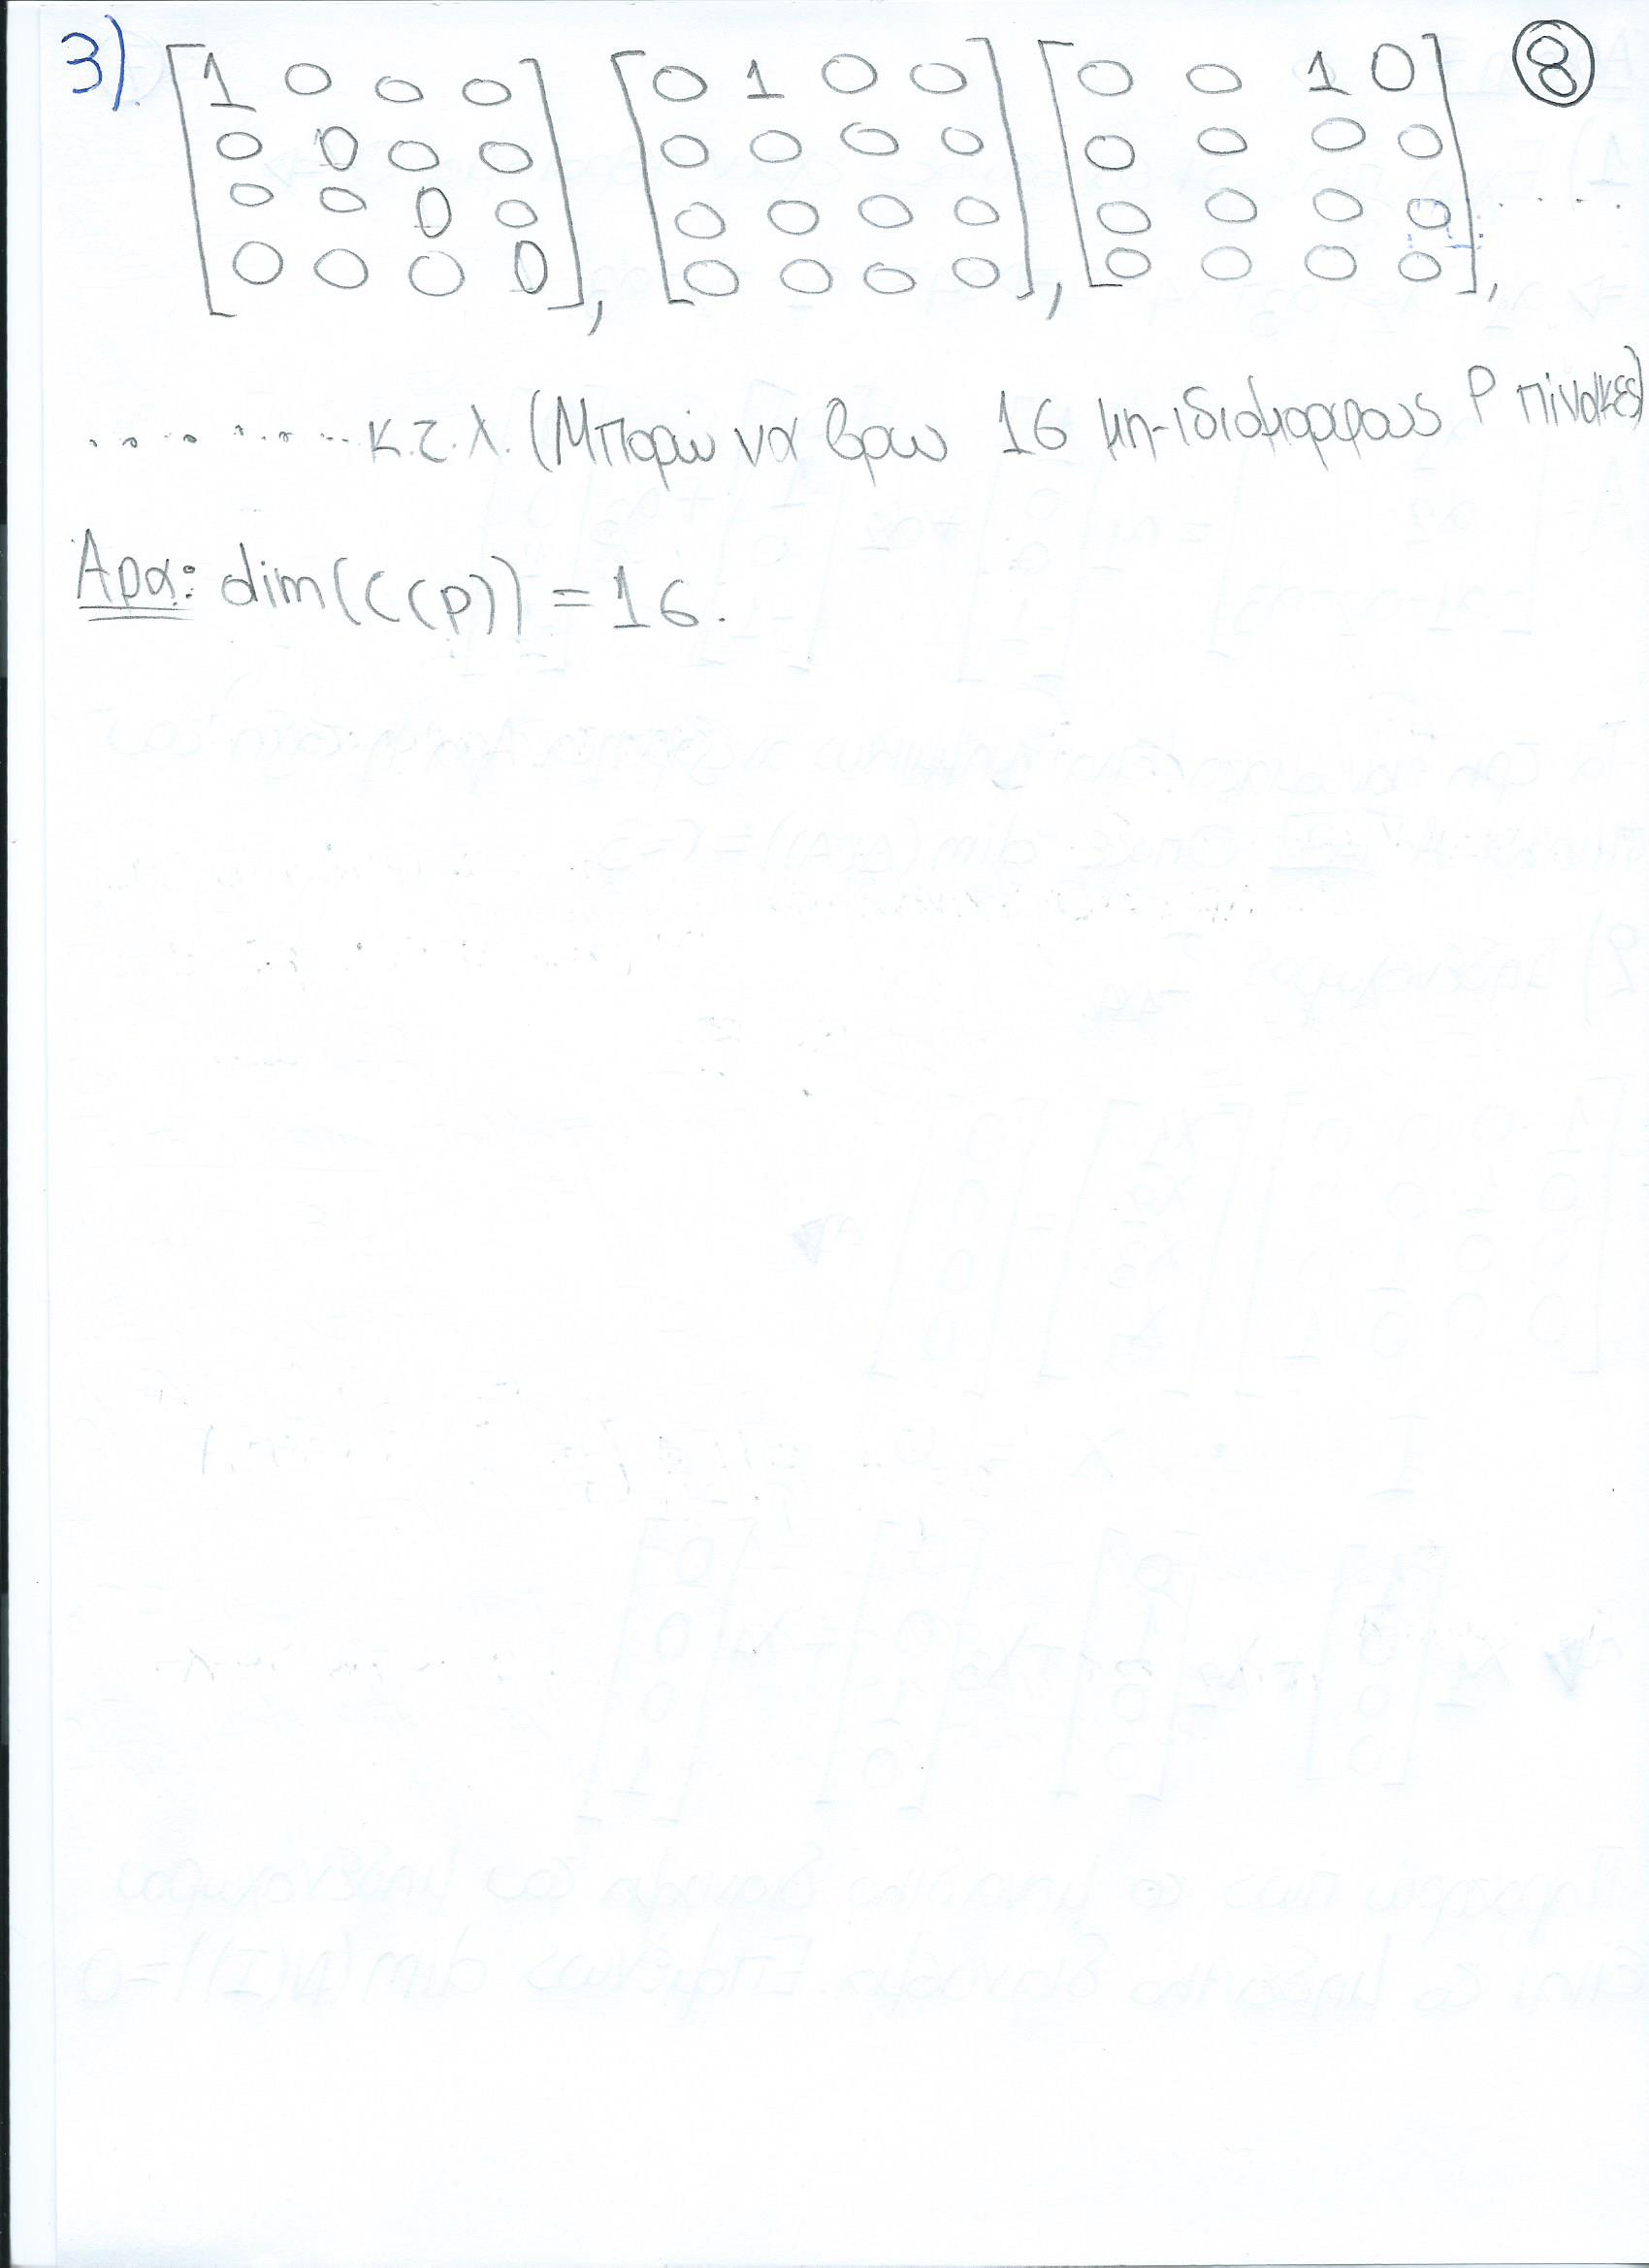 3). [1 0 0 0 [0 1 0 0] [0 0 1 0] 8
0 0 0 0 0 0 0 0 0 0 0 0
0 0 0 0 0 0 0 0 0 0 0 0 ....
0 0 0 0], 0 0 0 0], 0 0 0 0],
......... κ.τ.λ. (Μπορώ να βρω 16 μη-ιδιόμορφους P πίνακες)
Αρα: dim(C(P)) = 16.